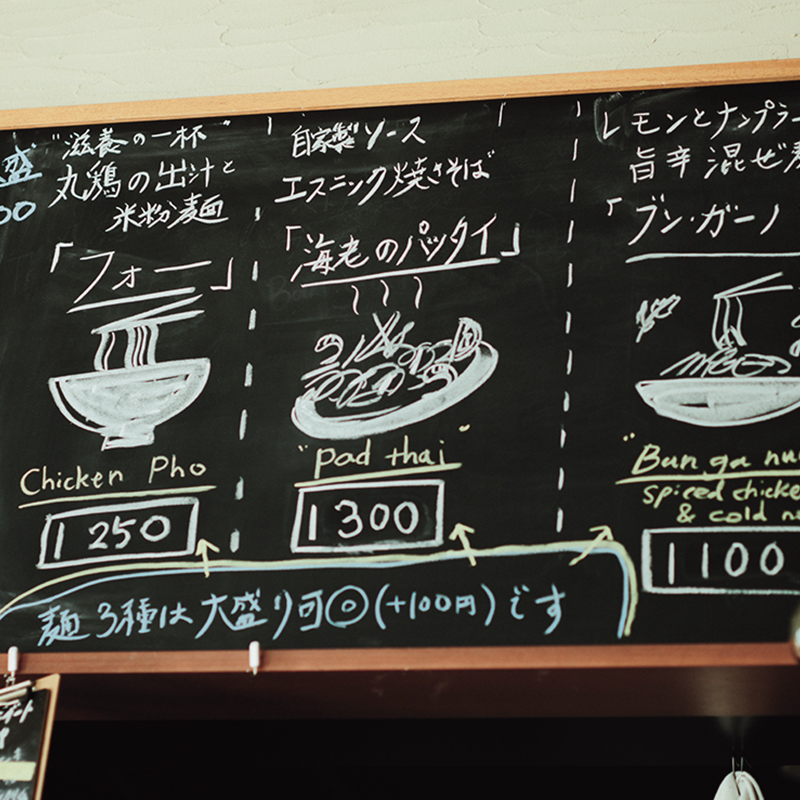 盛
00
"滋養の一杯"
丸鶏の出汁と
米粉麺
「フォー」
Chicken Pho
1250
自家製ソース
エスニック焼きそば
「海老のパッタイ」
"pad thai"
1300
レモンとナンプラー
旨辛混ぜ
「ブン・ガーノ
"Bun ga nu
spiced chicke
& cold n
1100
麺3種は大盛り可◎(+100円)です